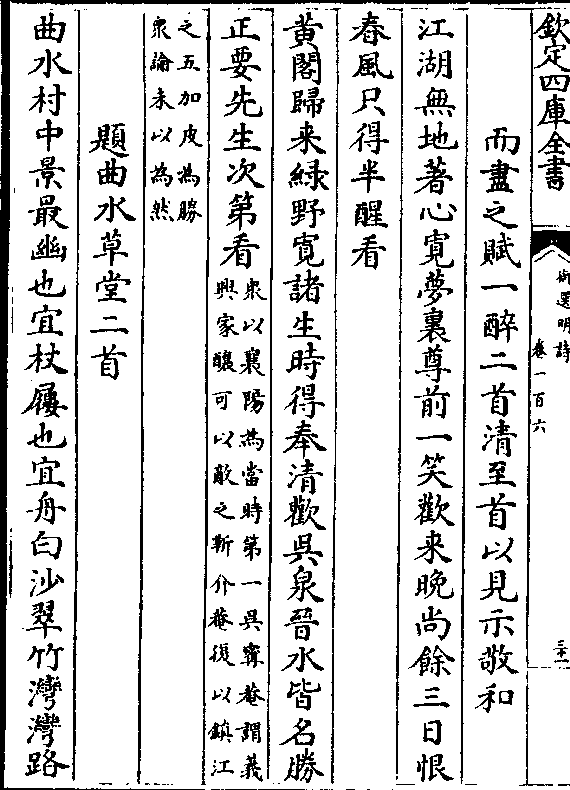 欽定四庫全書
御選明詩
卷一百六
三十二
而盡之賦一醉二首清至首以見示敬和
江湖無地著心寛夢裏尊前一笑歡来晚尚餘三日恨
春風只得半醒看
黄閣歸来緑野寛諸生時得奉清歡吳泉晉水皆名勝
正要先生次第看
衆以襄陽為當時第一吳寧菴謂義
興家釀可以敵之靳介菴復以鎮江
之五加皮為勝
衆論未以為然
題曲水草堂二首
曲水村中景最幽也宜杖屨也宜舟白沙翠竹灣灣路